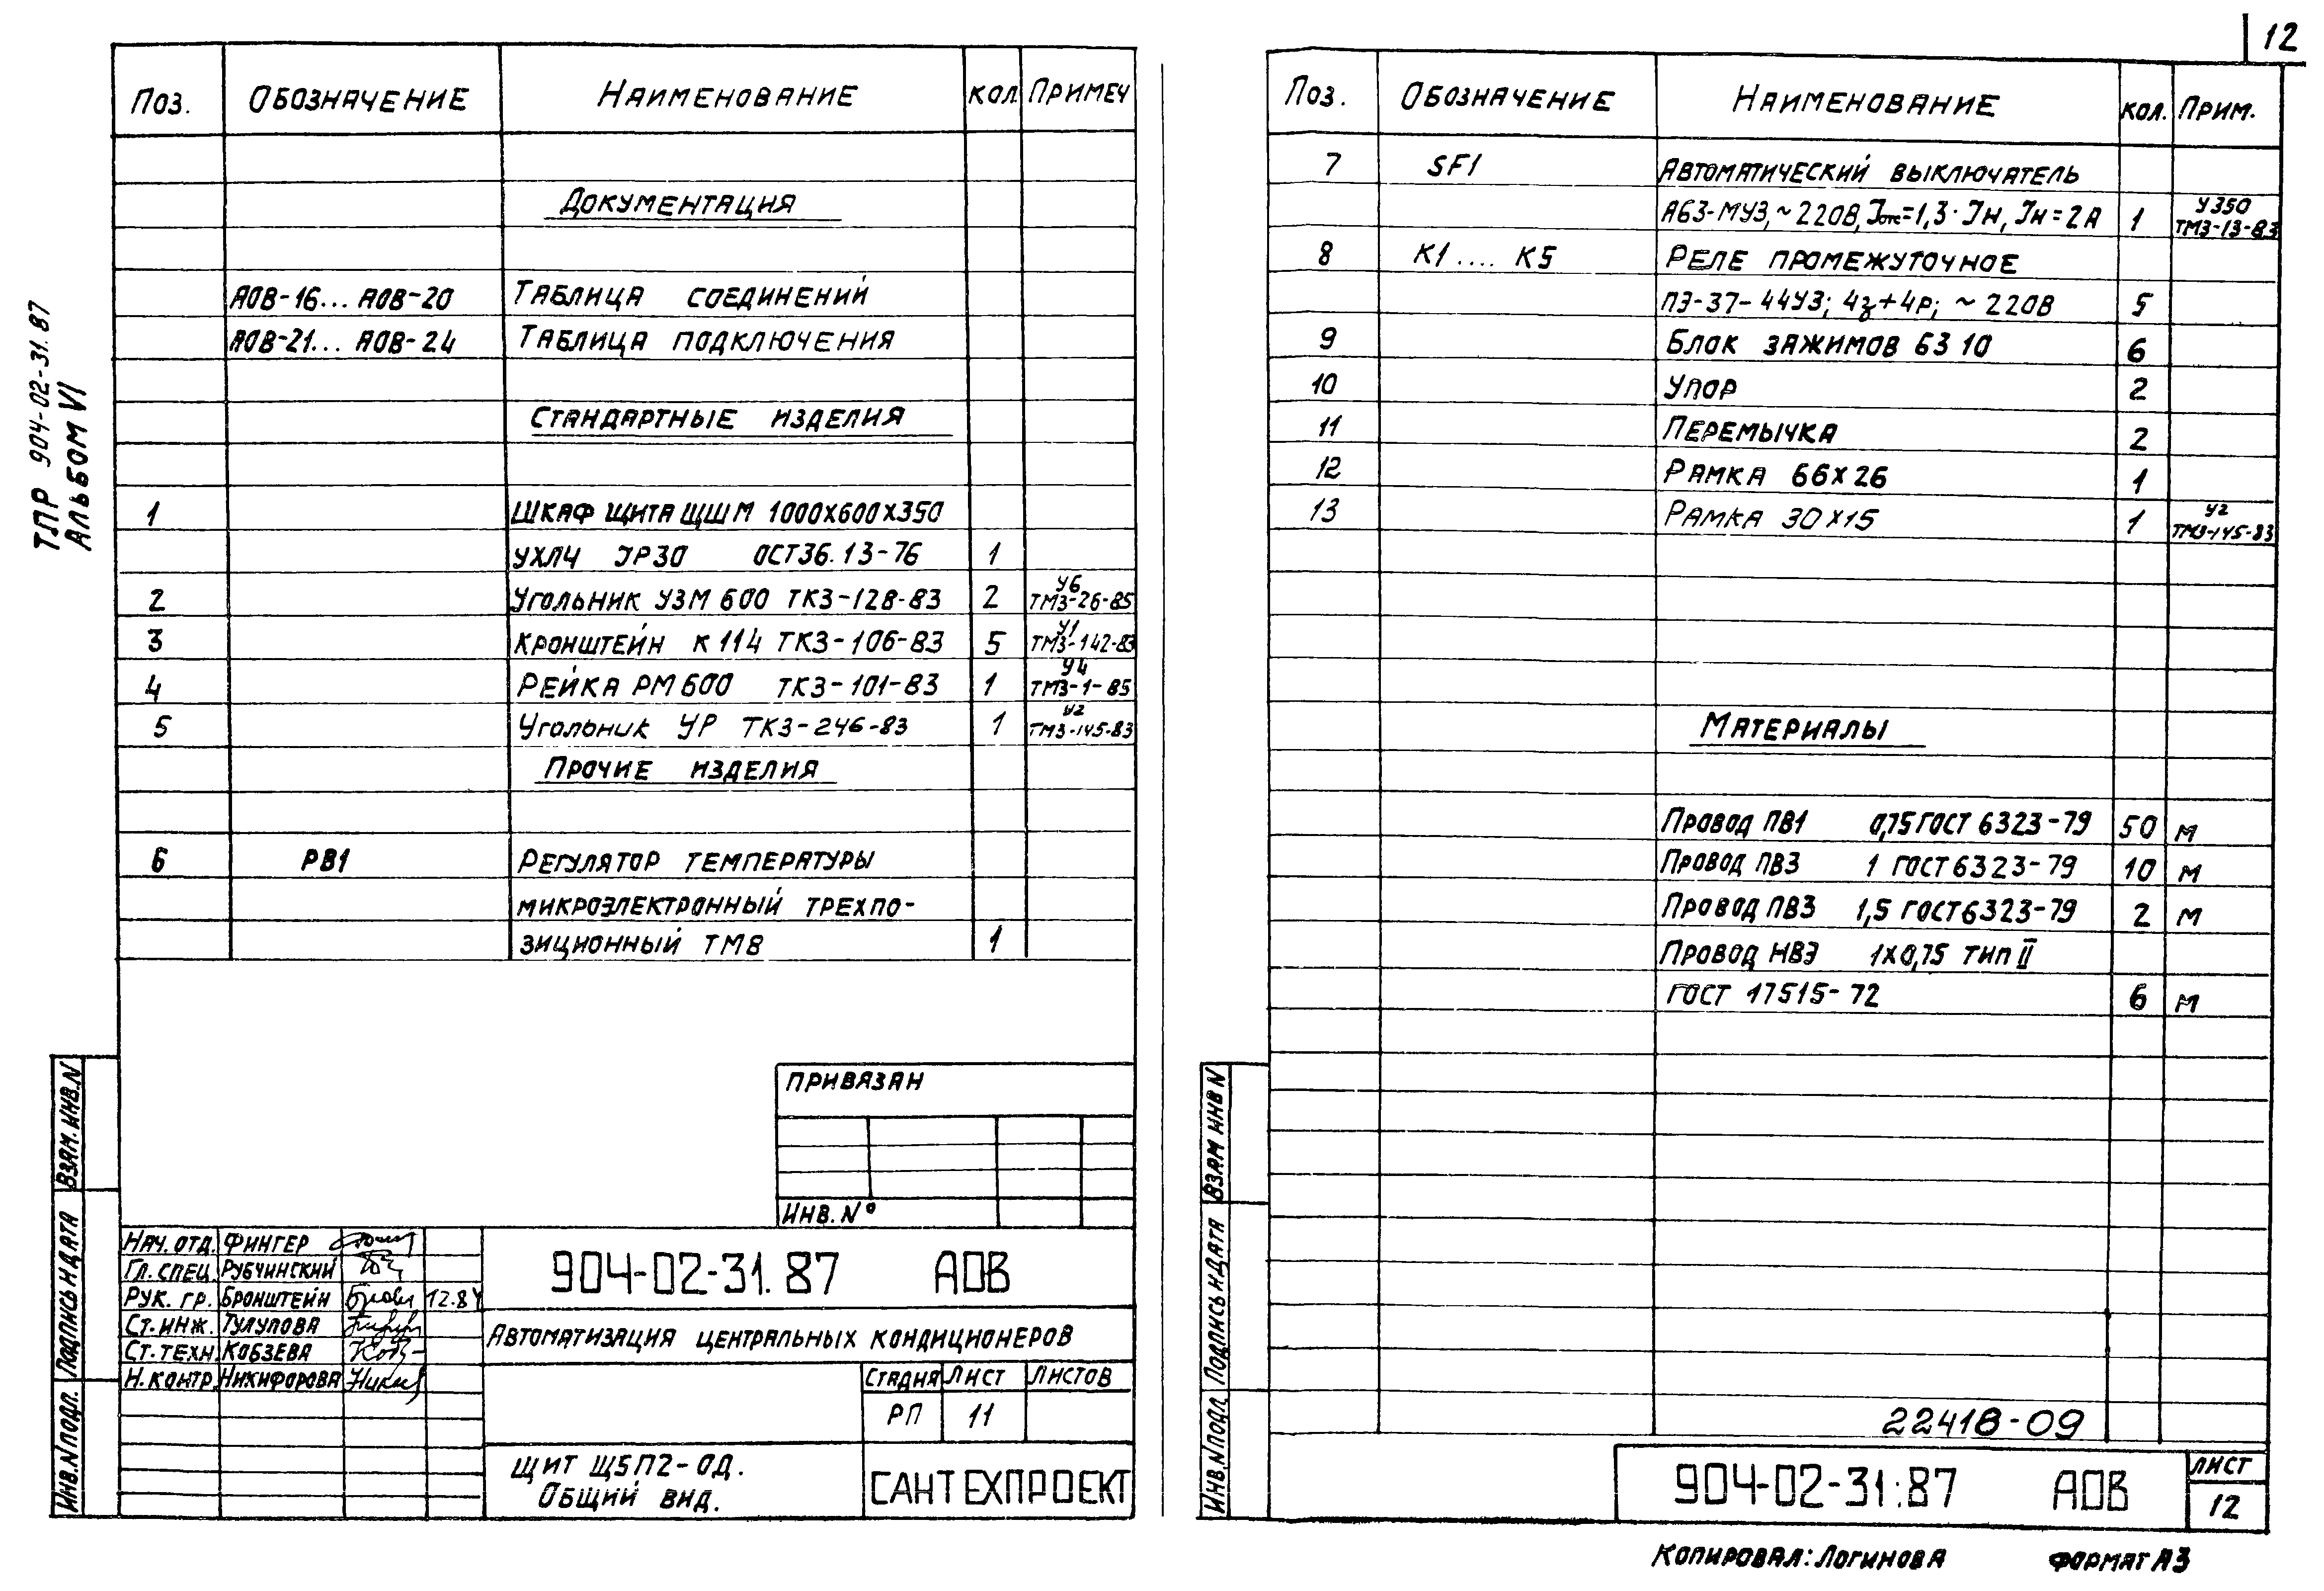 12
ТПР 904-02-31.87
Альбом VI
Поз. Обозначение Наименование Кол Примеч
Документация
АОВ-16... АОВ-20 Таблица соединений
АОВ-21... АОВ-24 Таблица подключения
Стандартные изделия
1 Шкаф щита ЩШМ 1000х600х350
УХЛ4 IP30 ОСТ36.13-76 1
2 Угольник УЗМ 600 ТК3-128-83 2 У6 ТМ3-26-85
3 Кронштейн К 114 ТК3-106-83 5 У1 ТМ3-142-83
4 Рейка РМ600 ТК3-101-83 1 У4 ТМ3-1-85
5 Угольник УР ТК3-246-83 1 У2 ТМ3-145-83
Прочие изделия
6 РВ1 Регулятор температуры
микроэлектронный трехпо-
зиционный ТМ8 1
Привязан
Инв. N°
Взам. инв. N
Подпись и дата
Инв. N подл.
Нач. отд. Фингер
Гл. спец. Рубчинский
Рук. гр. Бронштейн 12.84
Ст. инж. Тулупова
Ст. техн. Кобзева
Н. контр. Никифорова
904-02-31.87 АОВ
Автоматизация центральных кондиционеров
Стадия Лист Листов
РП 11
Щит Щ5П2-ОД.
Общий вид.
САНТЕХПРОЕКТ
Поз. Обозначение Наименование Кол. Прим.
7 SF1 Автоматический выключатель
А63-МУЗ, ~220В, Iотс=1,3·Iн, Iн=2А 1 У350 ТМ3-13-83
8 К1.... К5 Реле промежуточное
ПЭ-37-44УЗ; 4з+4р; ~220В 5
9 Блок зажимов Б3 10 6
10 Упор 2
11 Перемычка 2
12 Рамка 66х26 1
13 Рамка 30х15 1 У2 ТМ3-145-83
Материалы
Провод ПВ1 0,75 ГОСТ 6323-79 50 м
Провод ПВ3 1 ГОСТ 6323-79 10 м
Провод ПВ3 1,5 ГОСТ 6323-79 2 м
Провод НВЭ 1х0,75 тип II
ГОСТ 17515-72 6 м
Взам инв N
Подпись и дата
Инв. N подл
22418-09
904-02-31.87 АОВ
Лист
12
Копировал: Логинова Формат А3